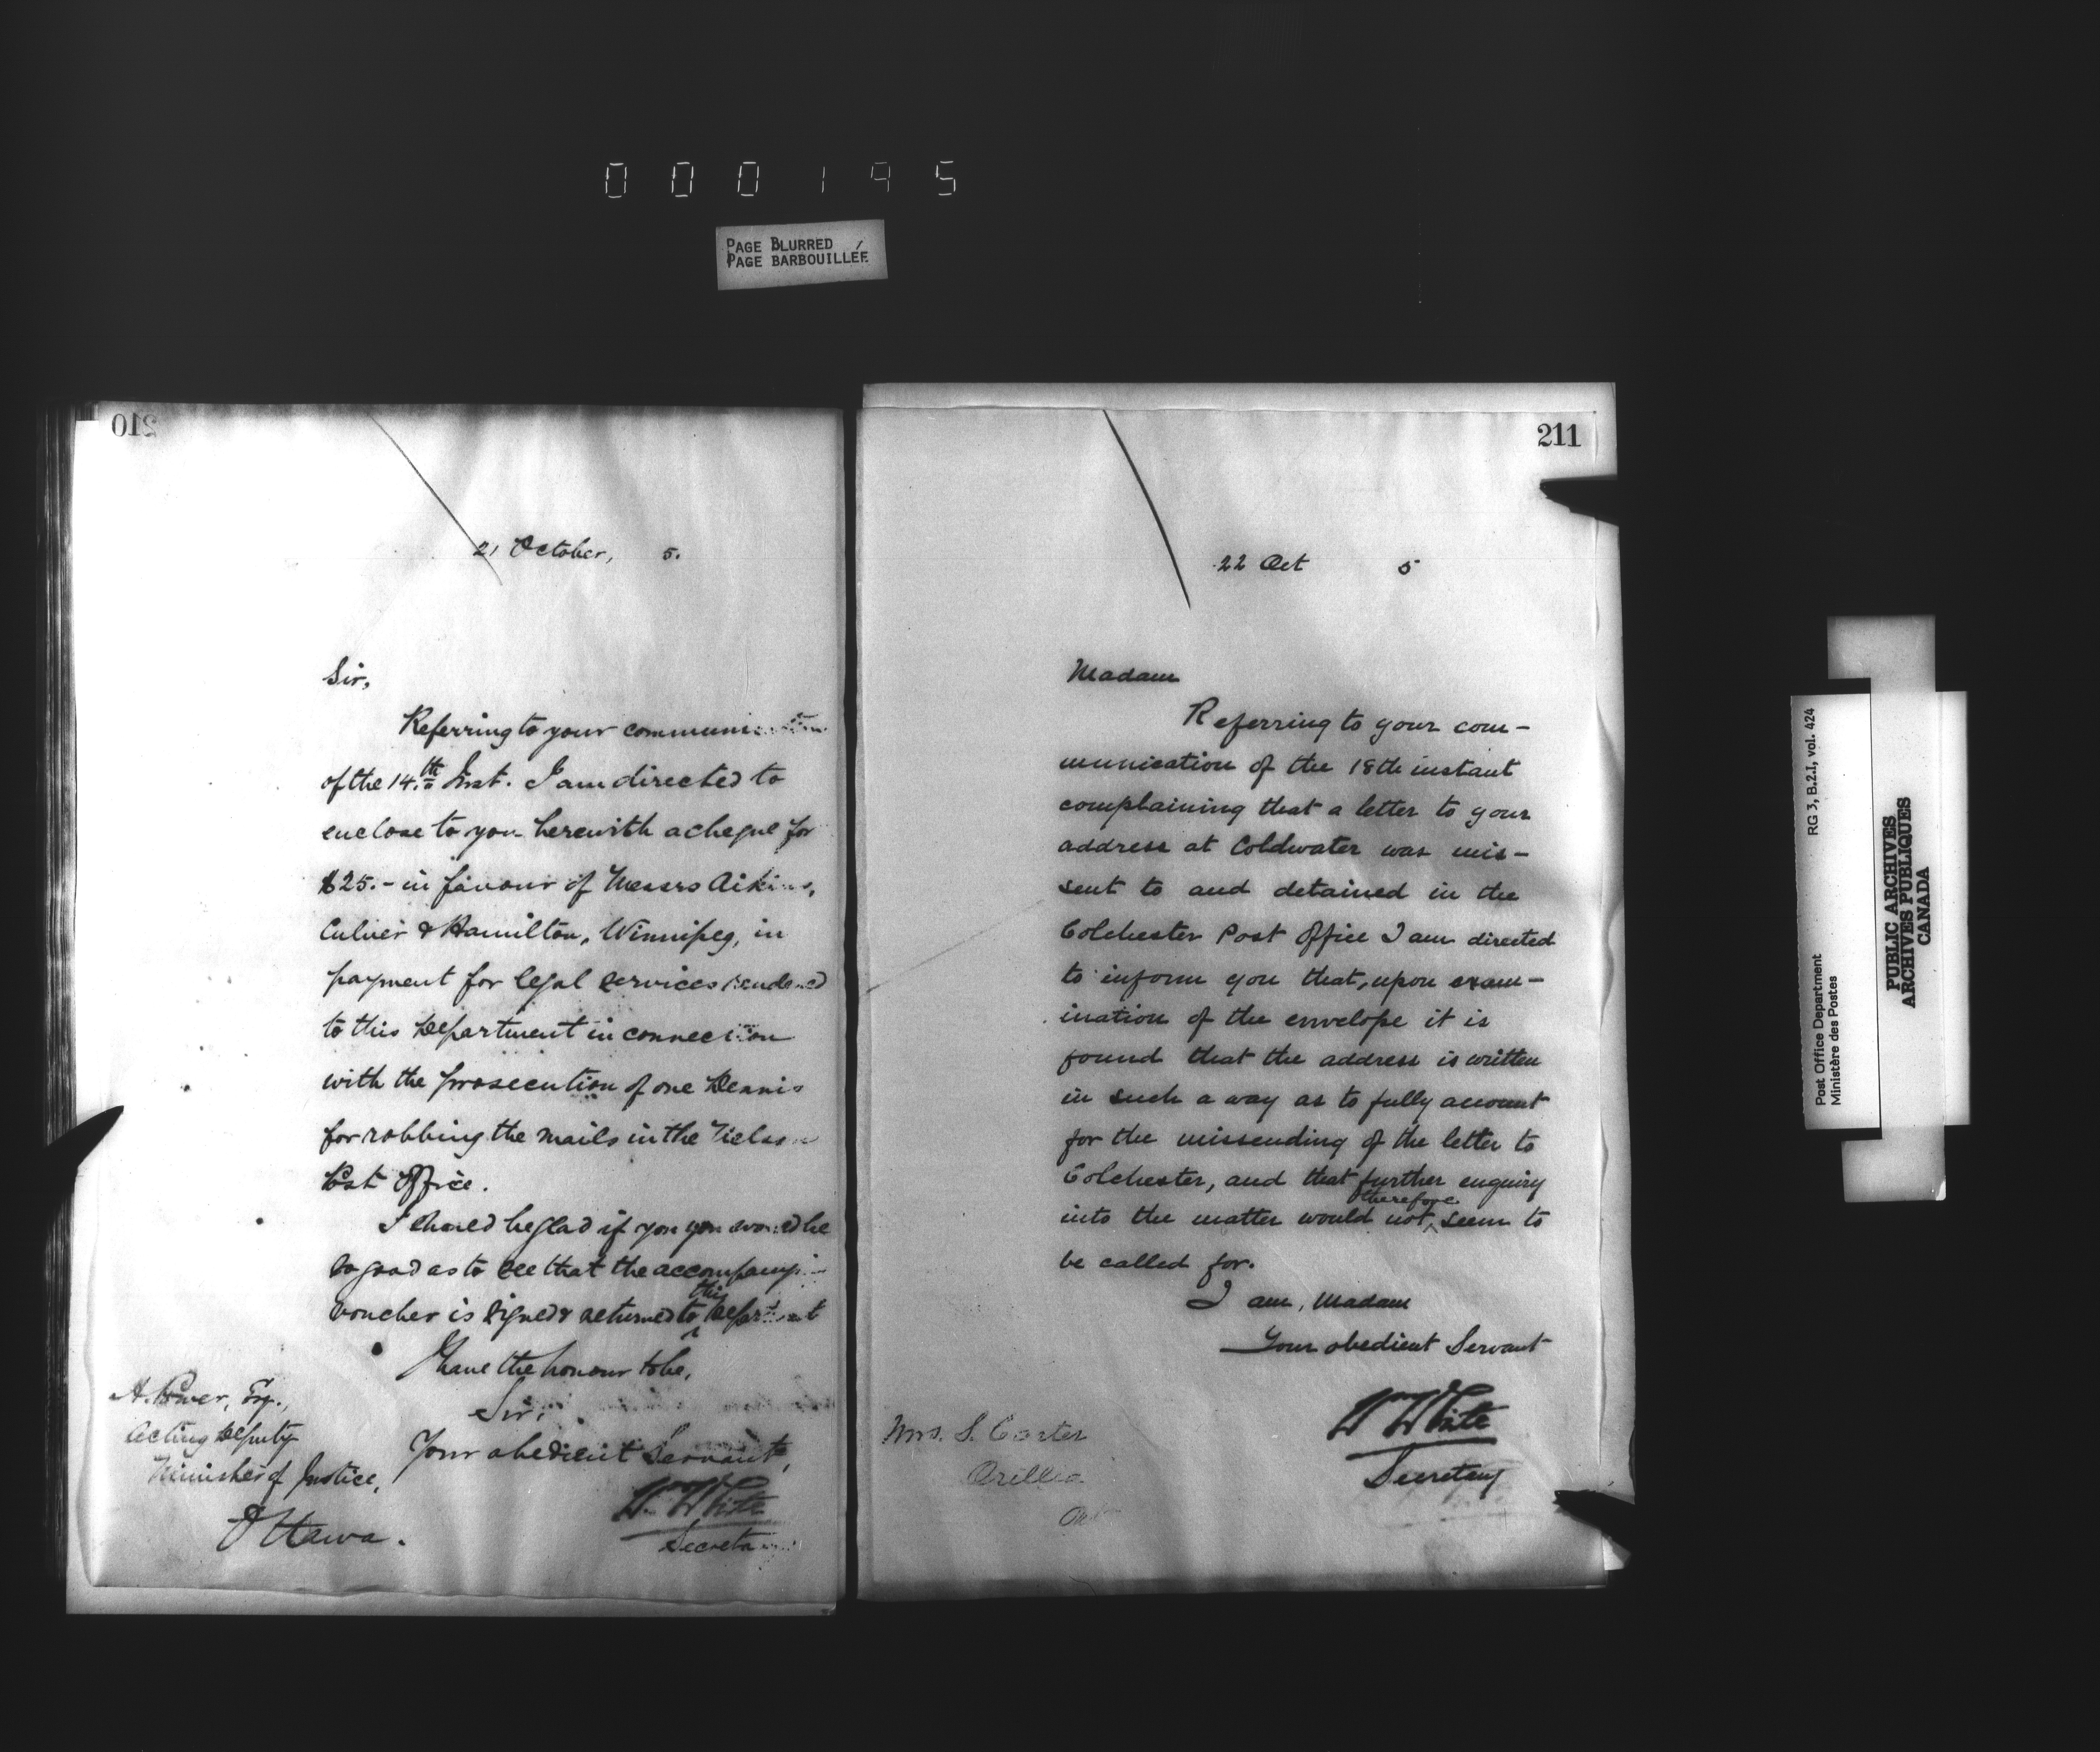 000195
PAGE BLURRED
PAGE BARBOUILLÉE
210
21 October, 5.
Sir,
Referring to your communication
of the 14.th Inst. I am directed to
enclose to you herewith a cheque for
$25.- in favour of Messrs Aikins,
Culver & Hamilton, Winnipeg, in
payment for legal services rendered
to this Department in connection
with the prosecution of one Dennis
for robbing the mails in the
Post Office.
I should be glad if you you would be
so good as to see that the accompany-
voucher is signed & returned to this Department
I have the honour to be,
Sir,
Your obedient Servant,
W. White
Secretary
A. Power, Esq.,
Acting Deputy
Minister of Justice,
Ottawa.
211
22 Oct 5
Madam
Referring to your com-
munication of the 18th instant
complaining that a letter to your
address at Coldwater was mis-
sent to and detained in the
Colchester Post Office I am directed
to inform you that, upon exam-
ination of the envelope it is
found that the address is written
in such a way as to fully account
for the missending of the letter to
Colchester, and that further enquiry
into the matter would not therefore seem to
be called for.
I am, Madam
Your obedient Servant
W White
Secretary
Mrs. S. Carter
Orillia
Ont
Post Office Department
Ministère des Postes
RG 3, B.2.I, vol. 424
PUBLIC ARCHIVES
ARCHIVES PUBLIQUES
CANADA